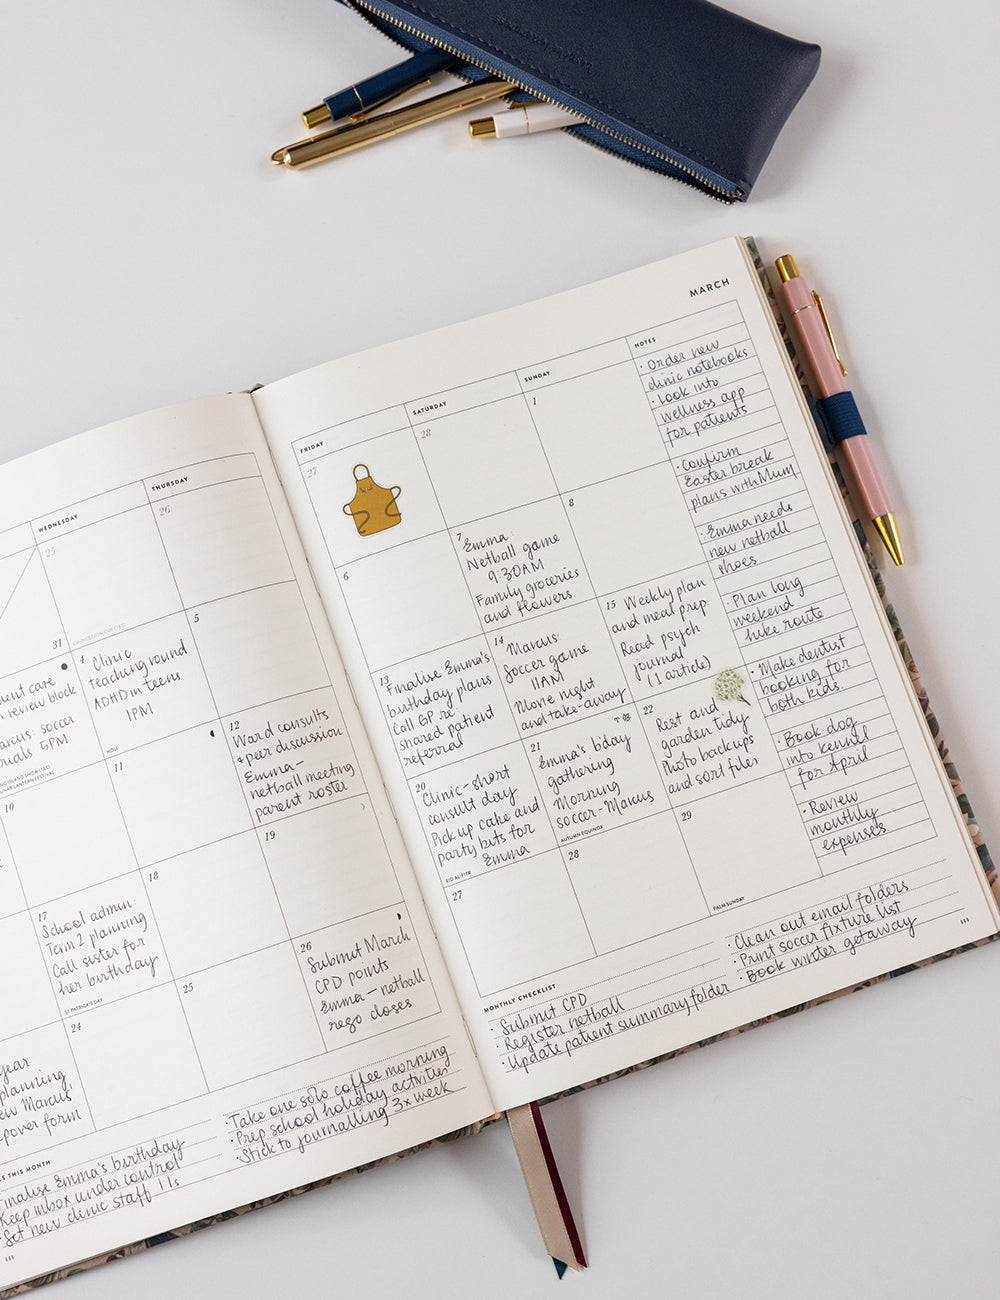 MARCH
WEDNESDAY
THURSDAY
25
26
31
LAUNCESTON CUP (TAS)
review block
soccer
5PM
4
Clinic
teaching round
ADHD in teens
1PM
5
HOLI
LUNAR LANTERN FESTIVAL
10
11
12
Ward consults
+ peer discussion
Emma –
netball meeting
parent roster
17
School admin:
Term 2 planning
Call sister for
her birthday
ST PATRICK'S DAY
18
19
year
planning,
Marcus'
form
24
25
26
Submit March
CPD points
Emma – netball
rego closes
THIS MONTH
Finalise Emma's birthday
Keep inbox under control
Set new clinic staff 1:1s
• Take one solo coffee morning
• Prep school holiday activities
• Stick to journalling 3x week
FRIDAY
SATURDAY
SUNDAY
NOTES
27
28
1
6
7
Emma:
Netball game
9:30AM
Family groceries
and flowers.
8
13
Finalise Emma's
birthday plans
Call GP re
shared patient
referral
14
Marcus:
Soccer game
11AM
Movie night
and take-away
15
Weekly plan
and meal prep
Read psych
journal
(1 article)
20
Clinic – short
consult day
Pick up cake and
party bits for
Emma
EID AL-FITR
21
Emma's b'day
gathering
Morning
soccer – Marcus
AUTUMN EQUINOX
22
Rest and
garden tidy
Photo backups
and sort files
27
28
29
PALM SUNDAY
• Order new
clinic notebooks
• Look into
wellness app
for patients
• Confirm
Easter break
plans with Mum
• Emma needs
new netball
shoes
• Plan long
weekend
hike route
• Make dentist
booking for
both kids.
• Book dog
into kennel
for April
• Review
monthly
expenses
MONTHLY CHECKLIST
• Submit CPD
• Register netball
• Update patient summary folder
• Clean out email folders
• Print soccer fixture list
• Book winter getaway